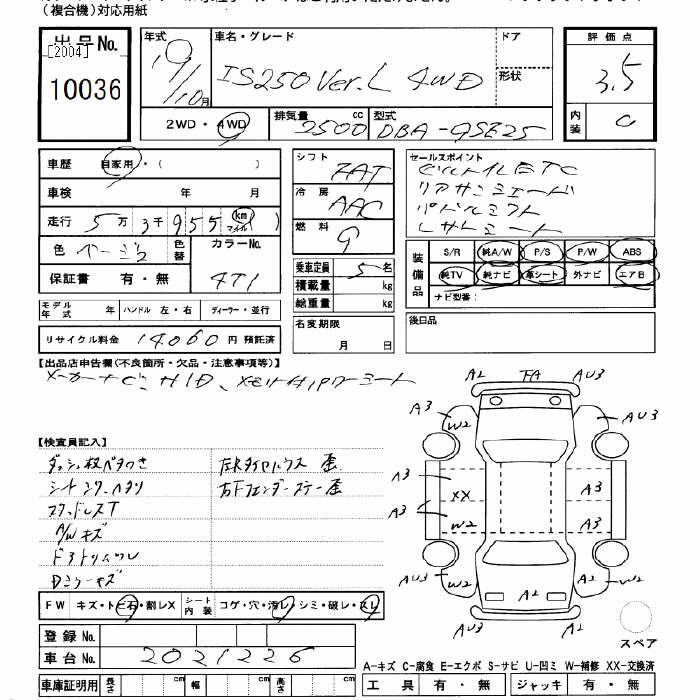 （複合機）対応用紙
出品No.
[2004]
10036
年式 19/10月
車名・グレード
IS250 Ver.L 4WD
ドア
形状
評価点
3.5
内装
C
2WD・4WD
排気量 2500 cc
型式 DBA-GSE25
車歴 自家用・（　）
車検 年 月
走行 5万3千955 km マイル（　）
色 ベージュ
色替
カラーNo. 4T1
保証書 有・無
シフト 7AT
冷房 AAC
燃料 G
乗車定員 5名
積載量 kg
総重量 kg
名変期限
月 日
セールスポイント
ビルトイルETC
リアサンシェード
パドルシフト
レザーシート
装備品
S/R 純A/W P/S P/W ABS
純TV 純ナビ 革シート 外ナビ エアB
ナビ型番：
後日品
モデル年式 年 ハンドル 左・右 ディーラー・並行
リサイクル料金 14060 円 預託済
【出品店申告欄（不良箇所・欠品・注意事項等）】
メーカーナビ、HID、メモリ付パワーシート
【検査員記入】
ダッシュ板ベタつき
シートシワ・ヘタリ
スタッドレスT
A/Wキズ
Dミラーキズ
左Rタイヤハウス 歪
右Fフェンダーステー歪
FW キズ・トビ石・割レX
シート内装 コゲ・穴・汚レ・シミ・破レ・スレ
登録No.
車台No. 2021226
車庫証明用 長さ cm 幅 cm 高さ cm
A1 FA AU3
A3 W2 AU3
A3 XX A3
A3 W2 A3
AU3 W2 A2 A2 W2
AU3 A1
スペア
A-キズ C-腐食 E-エクボ S-サビ U-凹ミ W-補修 XX-交換済
工具 有・無 ジャッキ 有・無